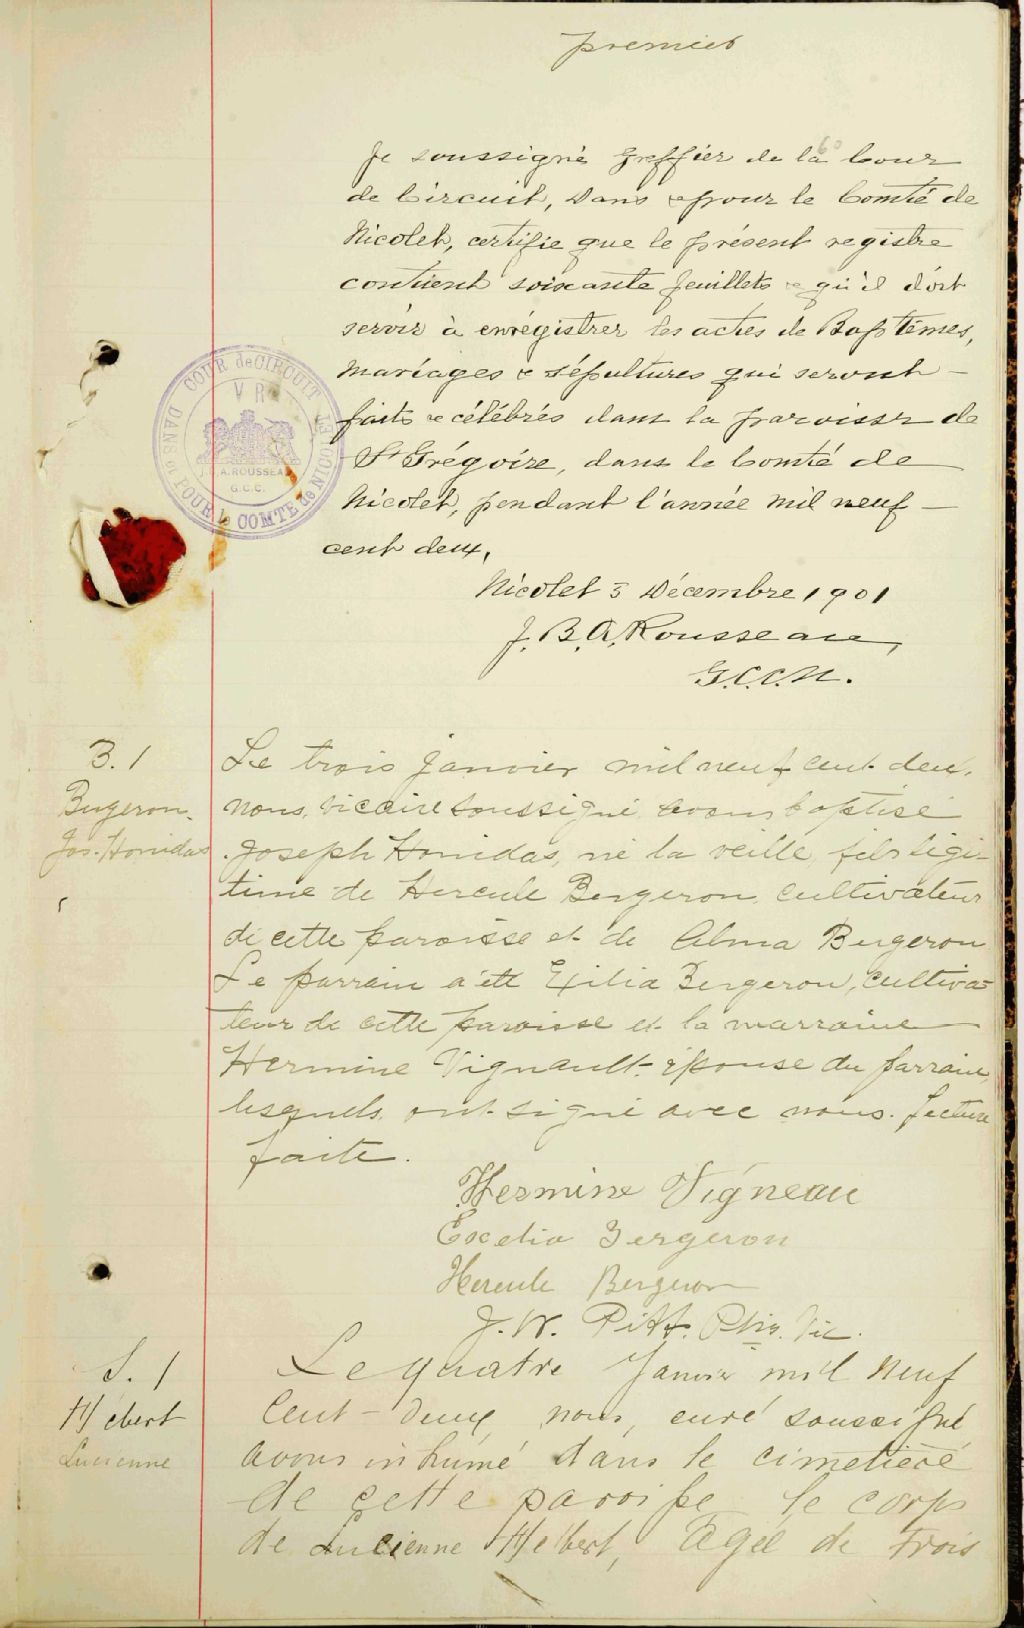 premier
Je soussigné Greffier de la Cour
de Circuit, dans & pour le Comté de
Nicolet, certifie que le présent registre
contient soixante feuillets & qu'il doit
servir à enrégistrer les actes de Baptêmes,
Mariages & sépultures qui seront
faits & célébrés dans la paroisse de
St Grégoire, dans le Comté de
Nicolet, pendant l'année mil neuf
cent deux,
COUR de CIRCUIT
DANS et POUR le COMTE de NICOLET
V R
J.B.A. ROUSSEAU
G.C.C.
Nicolet 3 Décembre 1901
J. B. A. Rousseau,
G.C.C.N.
B. 1
Bergeron.
Jos. Honidas
Le trois janvier mil neuf cent deux,
nous, vicaire soussigné avons baptisé
Joseph Honidas, né la veille, fils légi-
time de Hercule Bergeron, cultivateur
de cette paroisse et de Alma Bergeron
Le parrain a été Exilia Bergeron, cultiva-
teur de cette paroisse et la marraine
Hermine Vignault épouse du parrain,
lesquels ont signé avec nous. Lecture
faite.
Hermine Vigneau
Excelia Bergeron
Hercule Bergeron
J. W. Pitt. Ptre. Vic.
S. 1
Hébert
Lucienne
Le quatre Janvier mil neuf
Cent-deux, nous, curé soussigné
avons inhumé dans le cimetière
de cette paroisse le corps
de Lucienne Hébert, âgée de trois